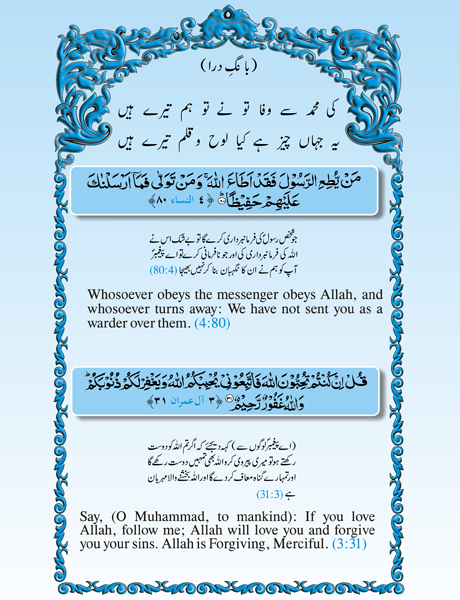 ۵
(بانگِ درا)
کی محمد سے وفا تو نے تو ہم تیرے ہیں
یہ جہاں چیز ہے کیا لوح و قلم تیرے ہیں
مَنْ يُّطِعِ الرَّسُوْلَ فَقَدْ اَطَاعَ اللّٰهَ ۚ وَمَنْ تَوَلّٰى فَمَاۤ اَرْسَلْنٰكَ
عَلَيْهِمْ حَفِيْظًا ؕ﴿۸۰﴾ ﴿ ٤ النساء ٨٠ ﴾
جو شخص رسول کی فرمانبرداری کرے گا تو بے شک اس نے
اللہ کی فرمانبرداری کی اور جو نافرمانی کرے تو اے پیغمبر
آپ کو ہم نے ان کا نگہبان بنا کر نہیں بھیجا (80:4)
Whosoever obeys the messenger obeys Allah, and
whosoever turns away: We have not sent you as a
warder over them. (4:80)
قُلْ اِنْ كُنْتُمْ تُحِبُّوْنَ اللّٰهَ فَاتَّبِعُوْنِىْ يُحْبِبْكُمُ اللّٰهُ وَيَغْفِرْ لَكُمْ ذُنُوْبَكُمْؕ
وَاللّٰهُ غَفُوْرٌ رَّحِيْمٌ ﴿۳۱﴾ ﴿ ٣ آل عمران ٣١ ﴾
(اے پیغمبر لوگوں سے) کہہ دیجئے کہ اگر تم اللہ کو دوست
رکھتے ہو تو میری پیروی کرو اللہ بھی تمہیں دوست رکھے گا
اور تمہارے گناہ معاف کر دے گا اور اللہ بخشنے والا مہربان
ہے (31:3)
Say, (O Muhammad, to mankind): If you love
Allah, follow me; Allah will love you and forgive
you your sins. Allah is Forgiving, Merciful. (3:31)